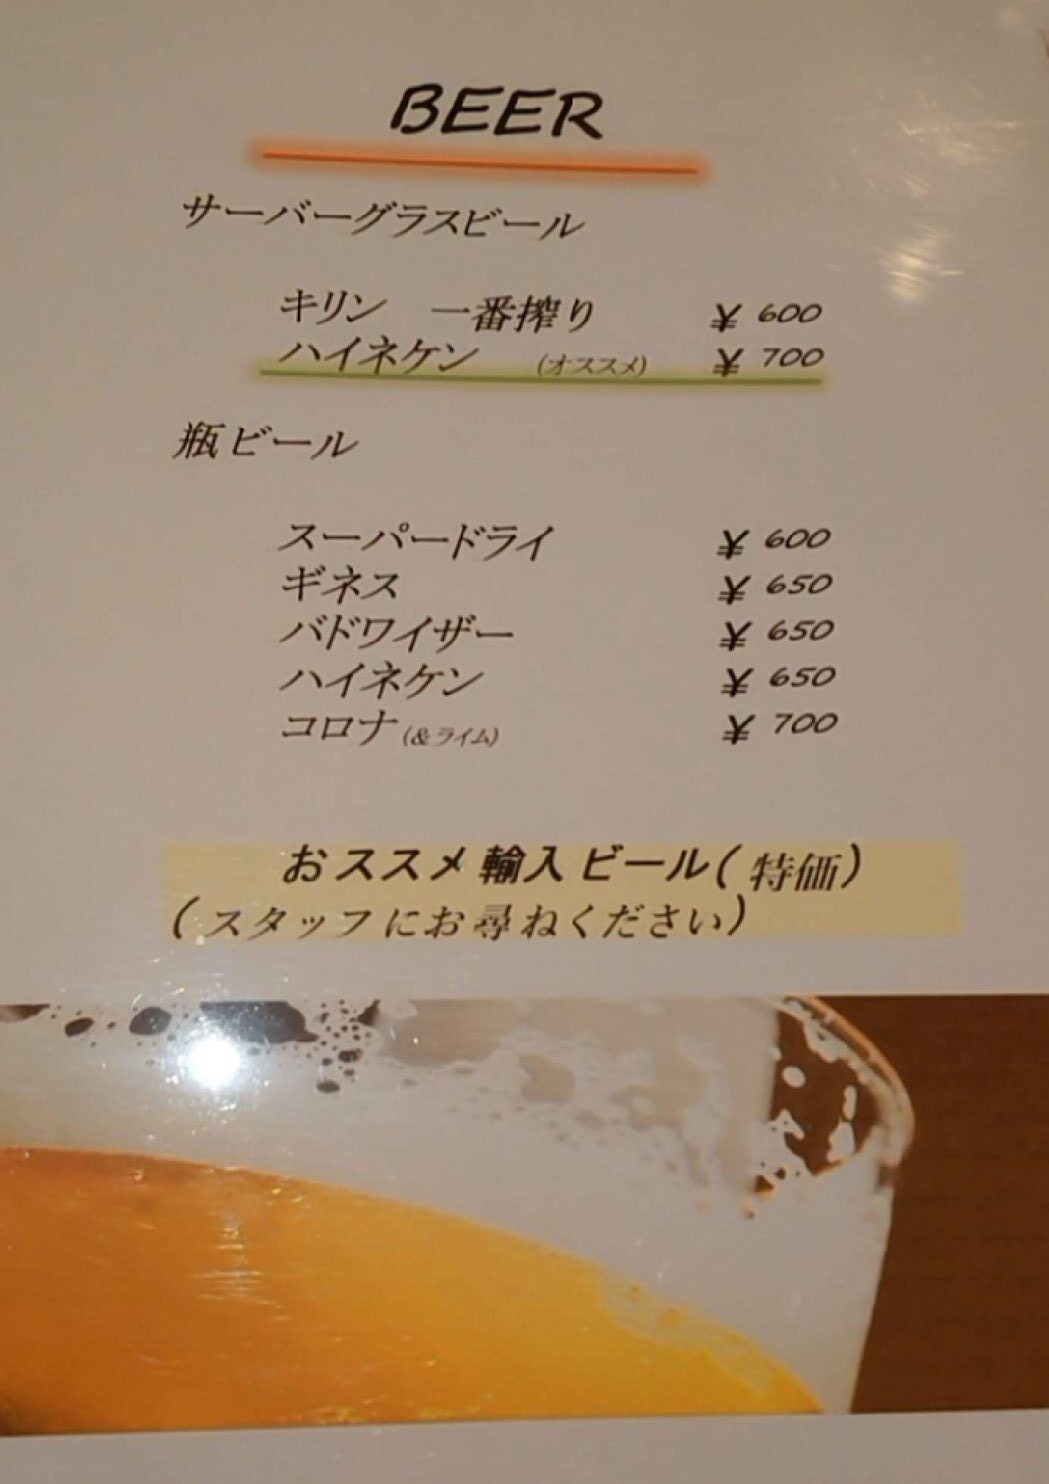 BEER
サーバーグラスビール
キリン 一番搾り ¥ 600
ハイネケン (オススメ) ¥ 700
瓶ビール
スーパードライ ¥ 600
ギネス ¥ 650
バドワイザー ¥ 650
ハイネケン ¥ 650
コロナ(&ライム) ¥ 700
おススメ輸入ビール(特価)
(スタッフにお尋ねください)